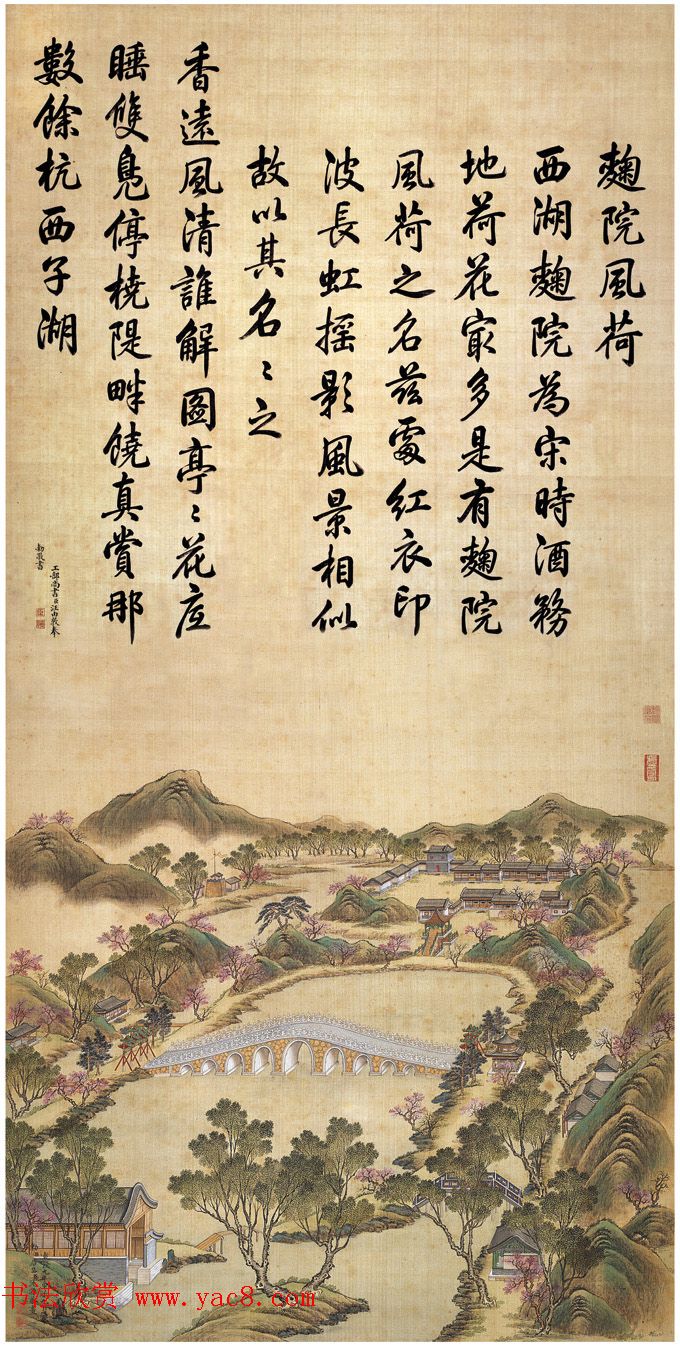 麹院風荷
西湖麹院為宋時酒務
地荷花㝡多是有麹院
風荷之名茲處紅衣印
波長虹摇影風景相似
故以其名〻之
香遠風清誰解圖亭〻花底
睡雙鳧停橈隄畔饒真賞那
數餘杭西子湖
工部尚書臣汪由敦奉
勅敬書
书法欣赏 www.yac8.com